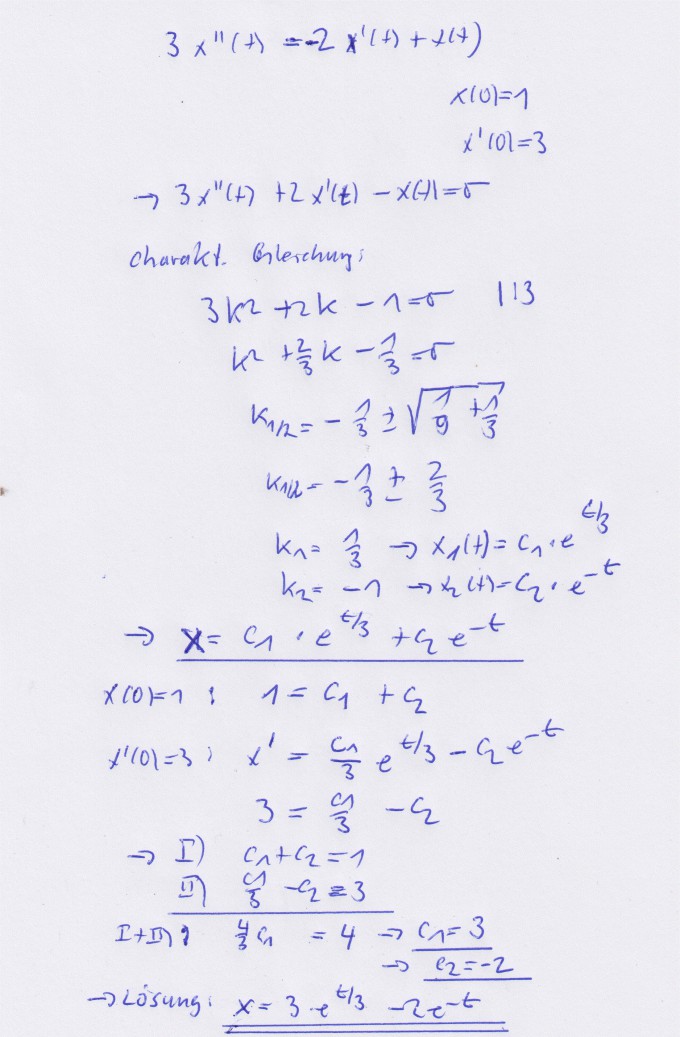 3 x''(t) = -2 x'(t) + x(t)
x(0)=1
x'(0)=3
→ 3x''(t) + 2x'(t) - x(t) = 0
Charakt. Gleichung:
3k² + 2k - 1 = 0 | :3
k² + 2/3 k - 1/3 = 0
k1/2 = - 1/3 ± √(1/9 + 1/3)
k1/2 = - 1/3 ± 2/3
k1 = 1/3 → x1(t) = C1 · e^(t/3)
k2 = -1 → x2(t) = C2 · e^(-t)
→ x = C1 · e^(t/3) + C2 e^(-t)
x(0)=1 : 1 = C1 + C2
x'(0)=3 : x' = C1/3 e^(t/3) - C2 e^(-t)
3 = C1/3 - C2
→ I) C1 + C2 = 1
II) C1/3 - C2 = 3
I+II) : 4/3 C1 = 4 → C1 = 3
→ C2 = -2
→ Lösung: x = 3 · e^(t/3) - 2e^(-t)